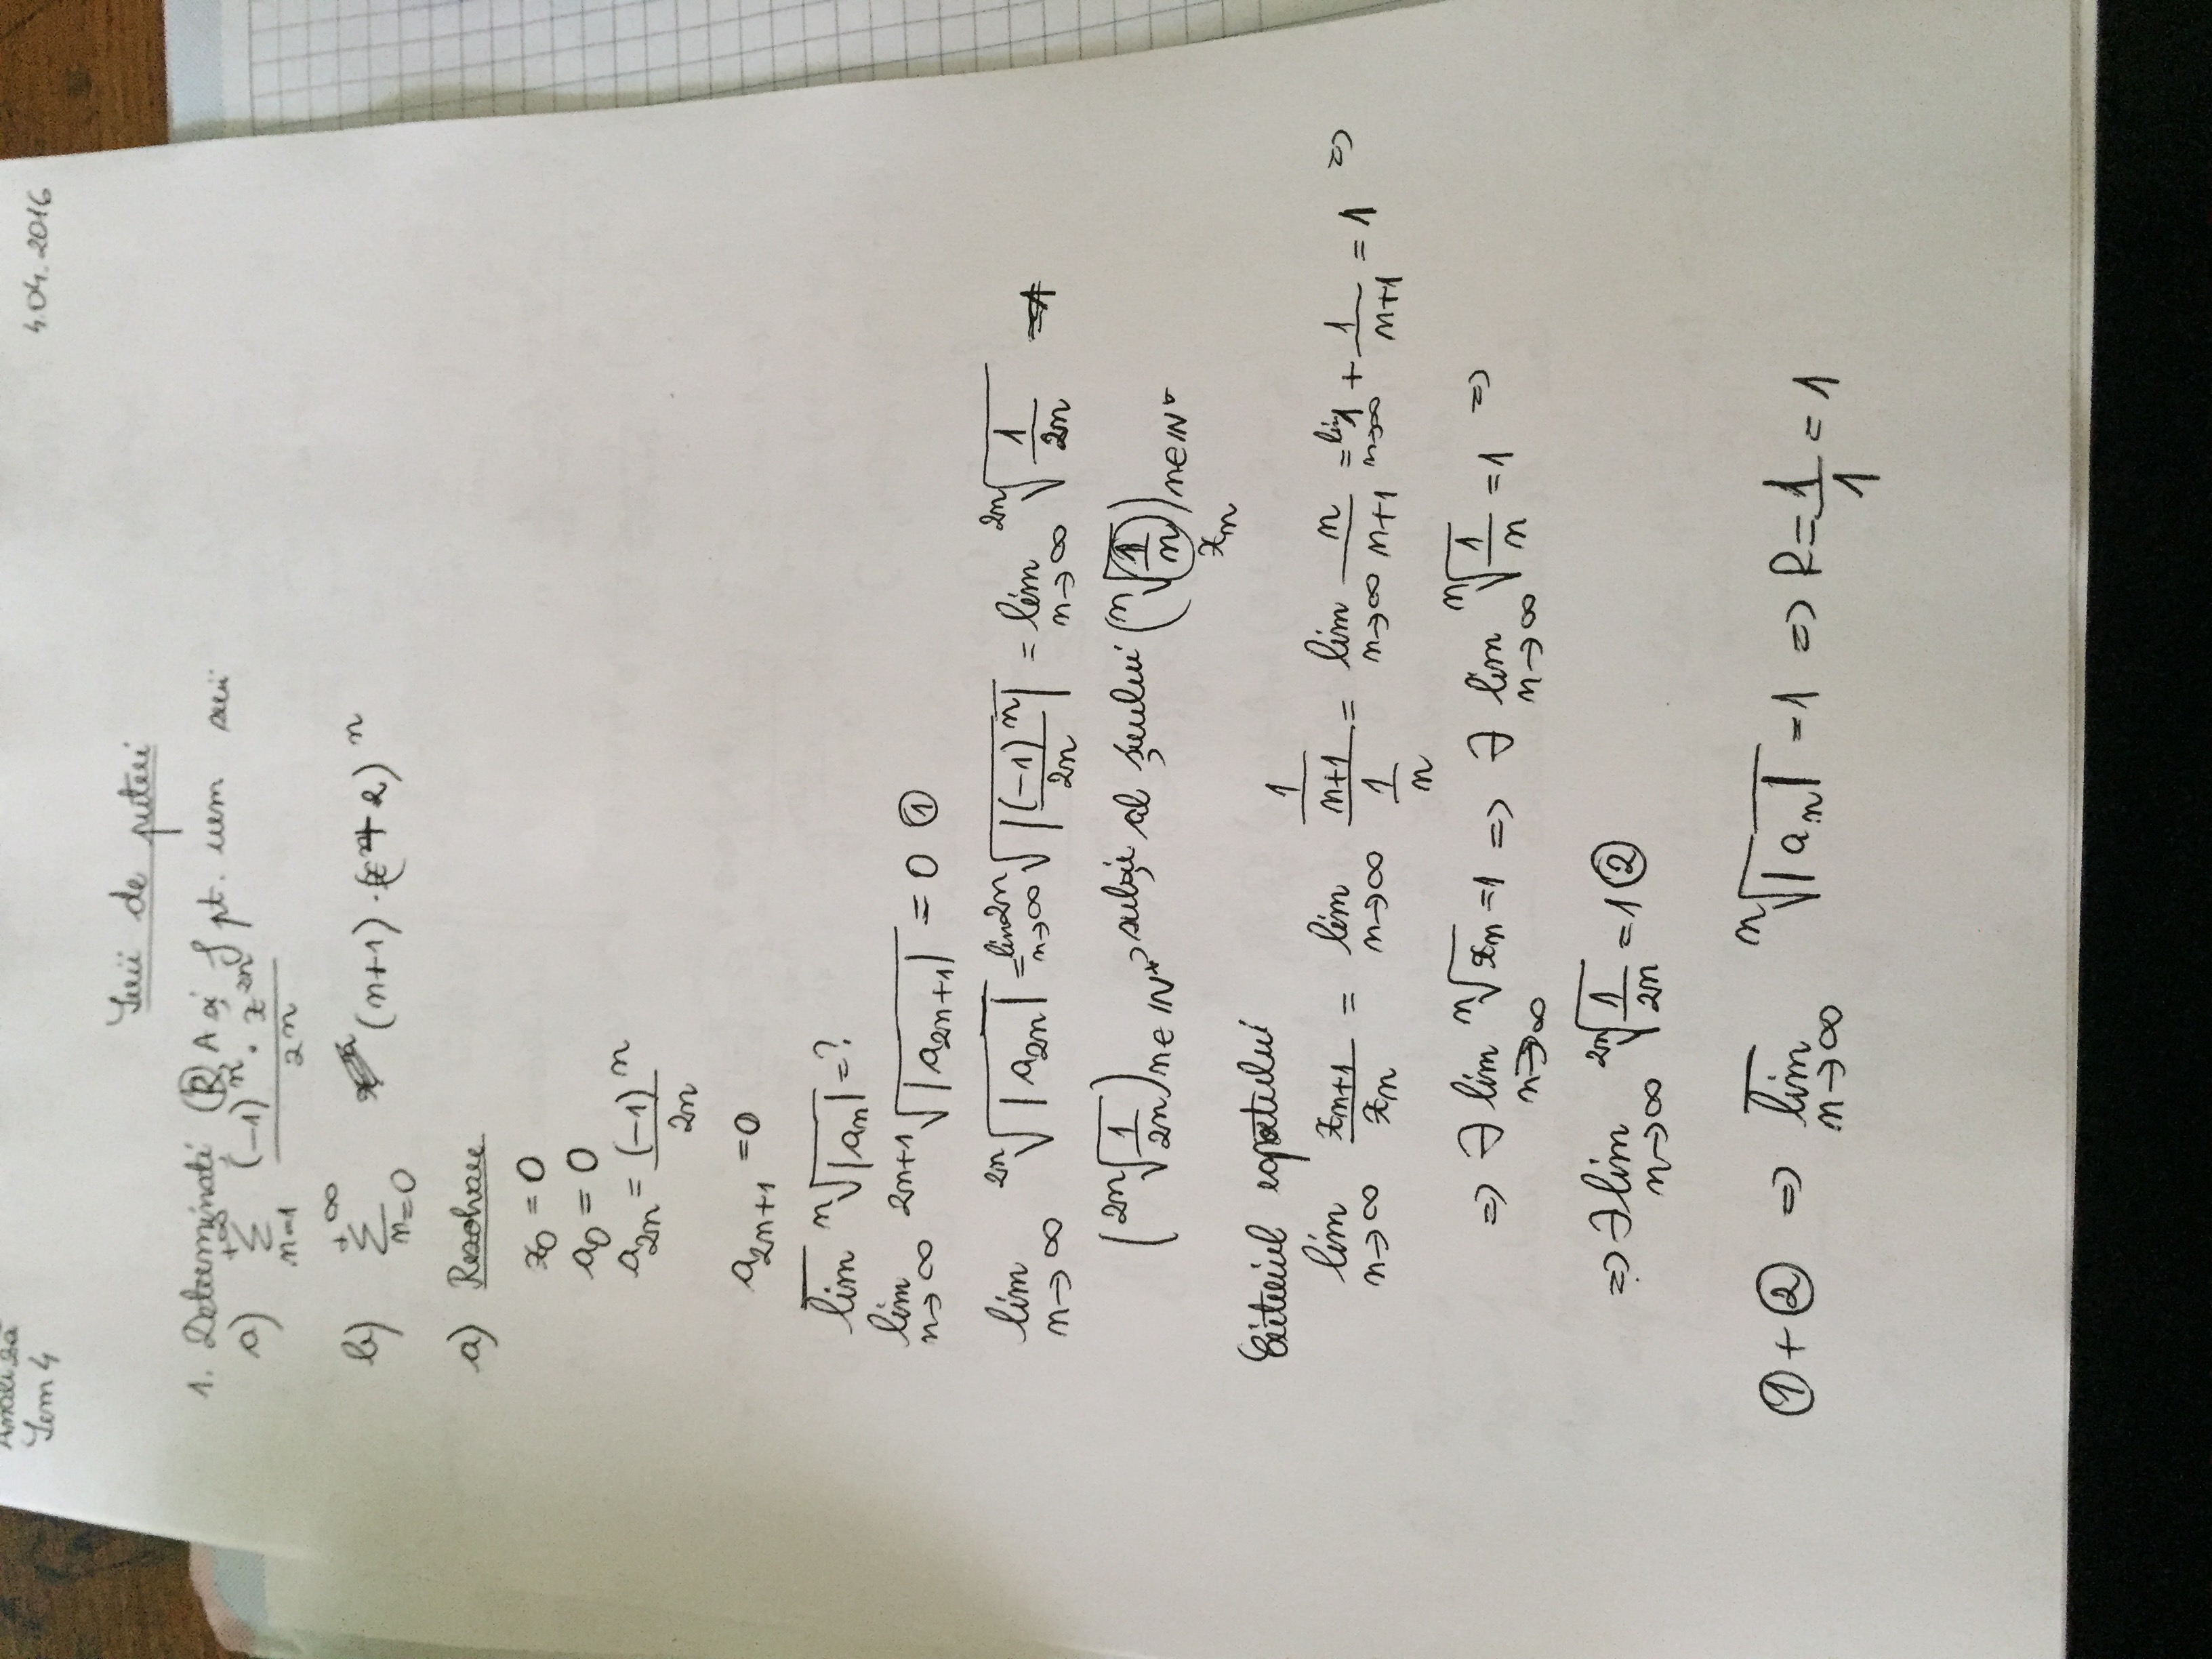 Analiză
Sem 4
4.04.2016
Serii de puteri
1. Determinați R, A și S pt. urm serii
a) \sum_{n=1}^{+\infty} \frac{(-1)^n \cdot x^{2n}}{2n}
b) \sum_{n=0}^{+\infty} (n+1) \cdot (x+2)^n
a) Rezolvare
x_0 = 0
a_0 = 0
a_{2n} = \frac{(-1)^n}{2n}
a_{2n+1} = 0
\overline{lim} \sqrt[n]{|a_n|} = ?
\lim_{n→∞} \sqrt[2n+1]{|a_{2n+1}|} = 0 ①
\lim_{n→∞} \sqrt[2n]{|a_{2n}|} = \lim_{n→∞} \sqrt[2n]{|\frac{(-1)^n}{2n}|} = \lim_{n→∞} \sqrt[2n]{\frac{1}{2n}}
(\sqrt[2n]{\frac{1}{2n}})_{n∈ℕ*}, subșir al șirului (\sqrt[n]{\frac{1}{n}})_{n∈ℕ*}
x_n
Criteriul raportului
\lim_{n→∞} \frac{x_{n+1}}{x_n} = \lim_{n→∞} \frac{\frac{1}{n+1}}{\frac{1}{n}} = \lim_{n→∞} \frac{n}{n+1} = \lim_{n→∞} 1 + \frac{1}{n+1} = 1 =>
=> ∃ \lim_{n→∞} \sqrt[n]{x_n} = 1 => ∃ \lim_{n→∞} \sqrt[n]{\frac{1}{n}} = 1 =>
=> ∃ \lim_{n→∞} \sqrt[2n]{\frac{1}{2n}} = 1 ②
① + ② => \overline{lim}_{n→∞} \sqrt[n]{|a_n|} = 1 => R = \frac{1}{1} = 1